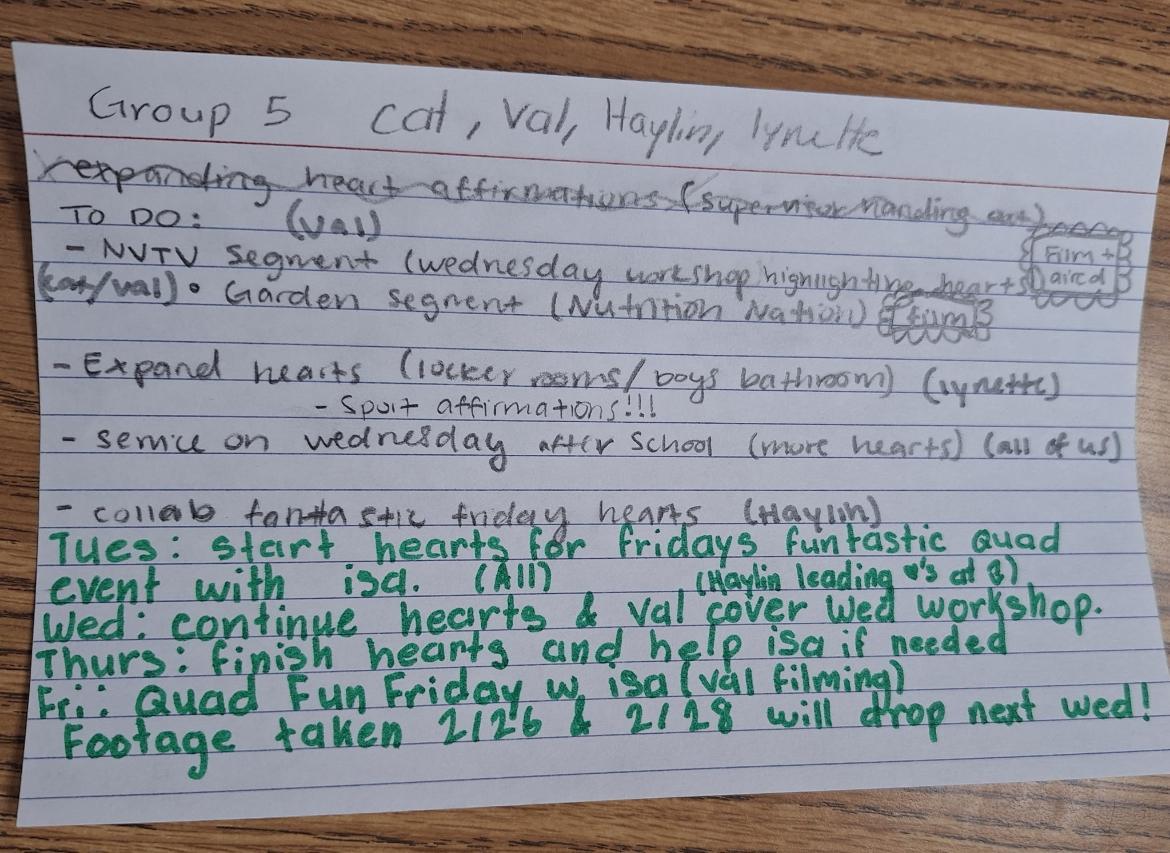 Group 5 cat, Val, Haylin, lynette
expanding heart affirmations (supervisor handing out)
TO DO: (Val)
- NVTV segment (wednesday workshop highlighting hearts) Film + aired
(cat/val) • Garden segment (Nutrition Nation) film
- Expand hearts (locker rooms/boys bathroom) (lynette)
- Sport affirmations!!!
- service on wednesday after School (more hearts) (all of us)
- collab fantastic friday hearts (Haylin)
Tues: start hearts for fridays funtastic Quad
event with isa. (All) (Haylin leading ♥'s at 3)
Wed: continue hearts & Val cover Wed workshop.
Thurs: finish hearts and help isa if needed
Fri: Quad Fun Friday w, isa (val filming)
Footage taken 2/26 & 2/28 will drop next wed!